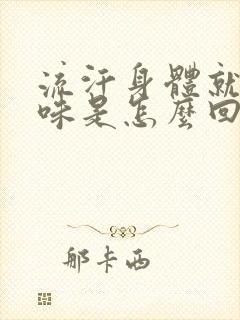 流汗身體就
味是怎麼回
那卡西